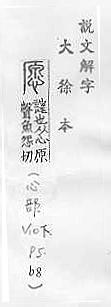 說文解字
大徐本
愿 謹也从心原
聲魚怨切
(心部
V10下
P5.
b8)